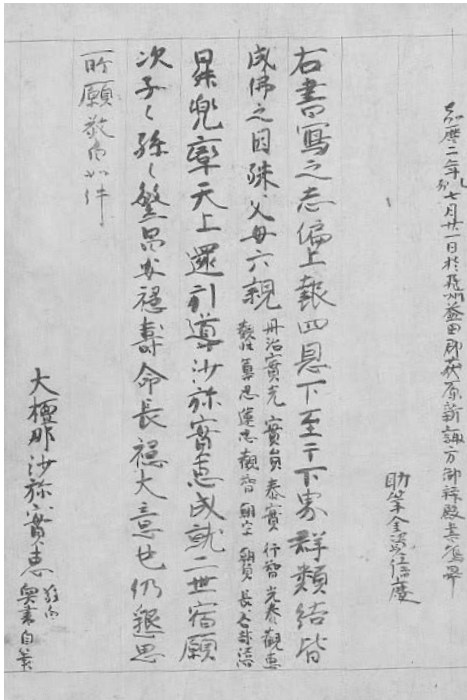 嘉慶二年七月廿一日於飛州益田郡萩原新諏方御拝殿書写畢
助筆金資信慶
右書寫之志偏上報四恩下至于下界群類結皆
成佛之因殊父母六親
丹治實光 實員 泰實 行智 光泰 觀惠
尊忍 蓮忠 觀智 朝員
昇兜率天上還引導沙弥實惠成就二世宿願
次子〻孫〻繁昌安穏壽命長穏大意也仍懇思
所願敬白如件
大檀那沙弥實惠
敬白
奥書自筆